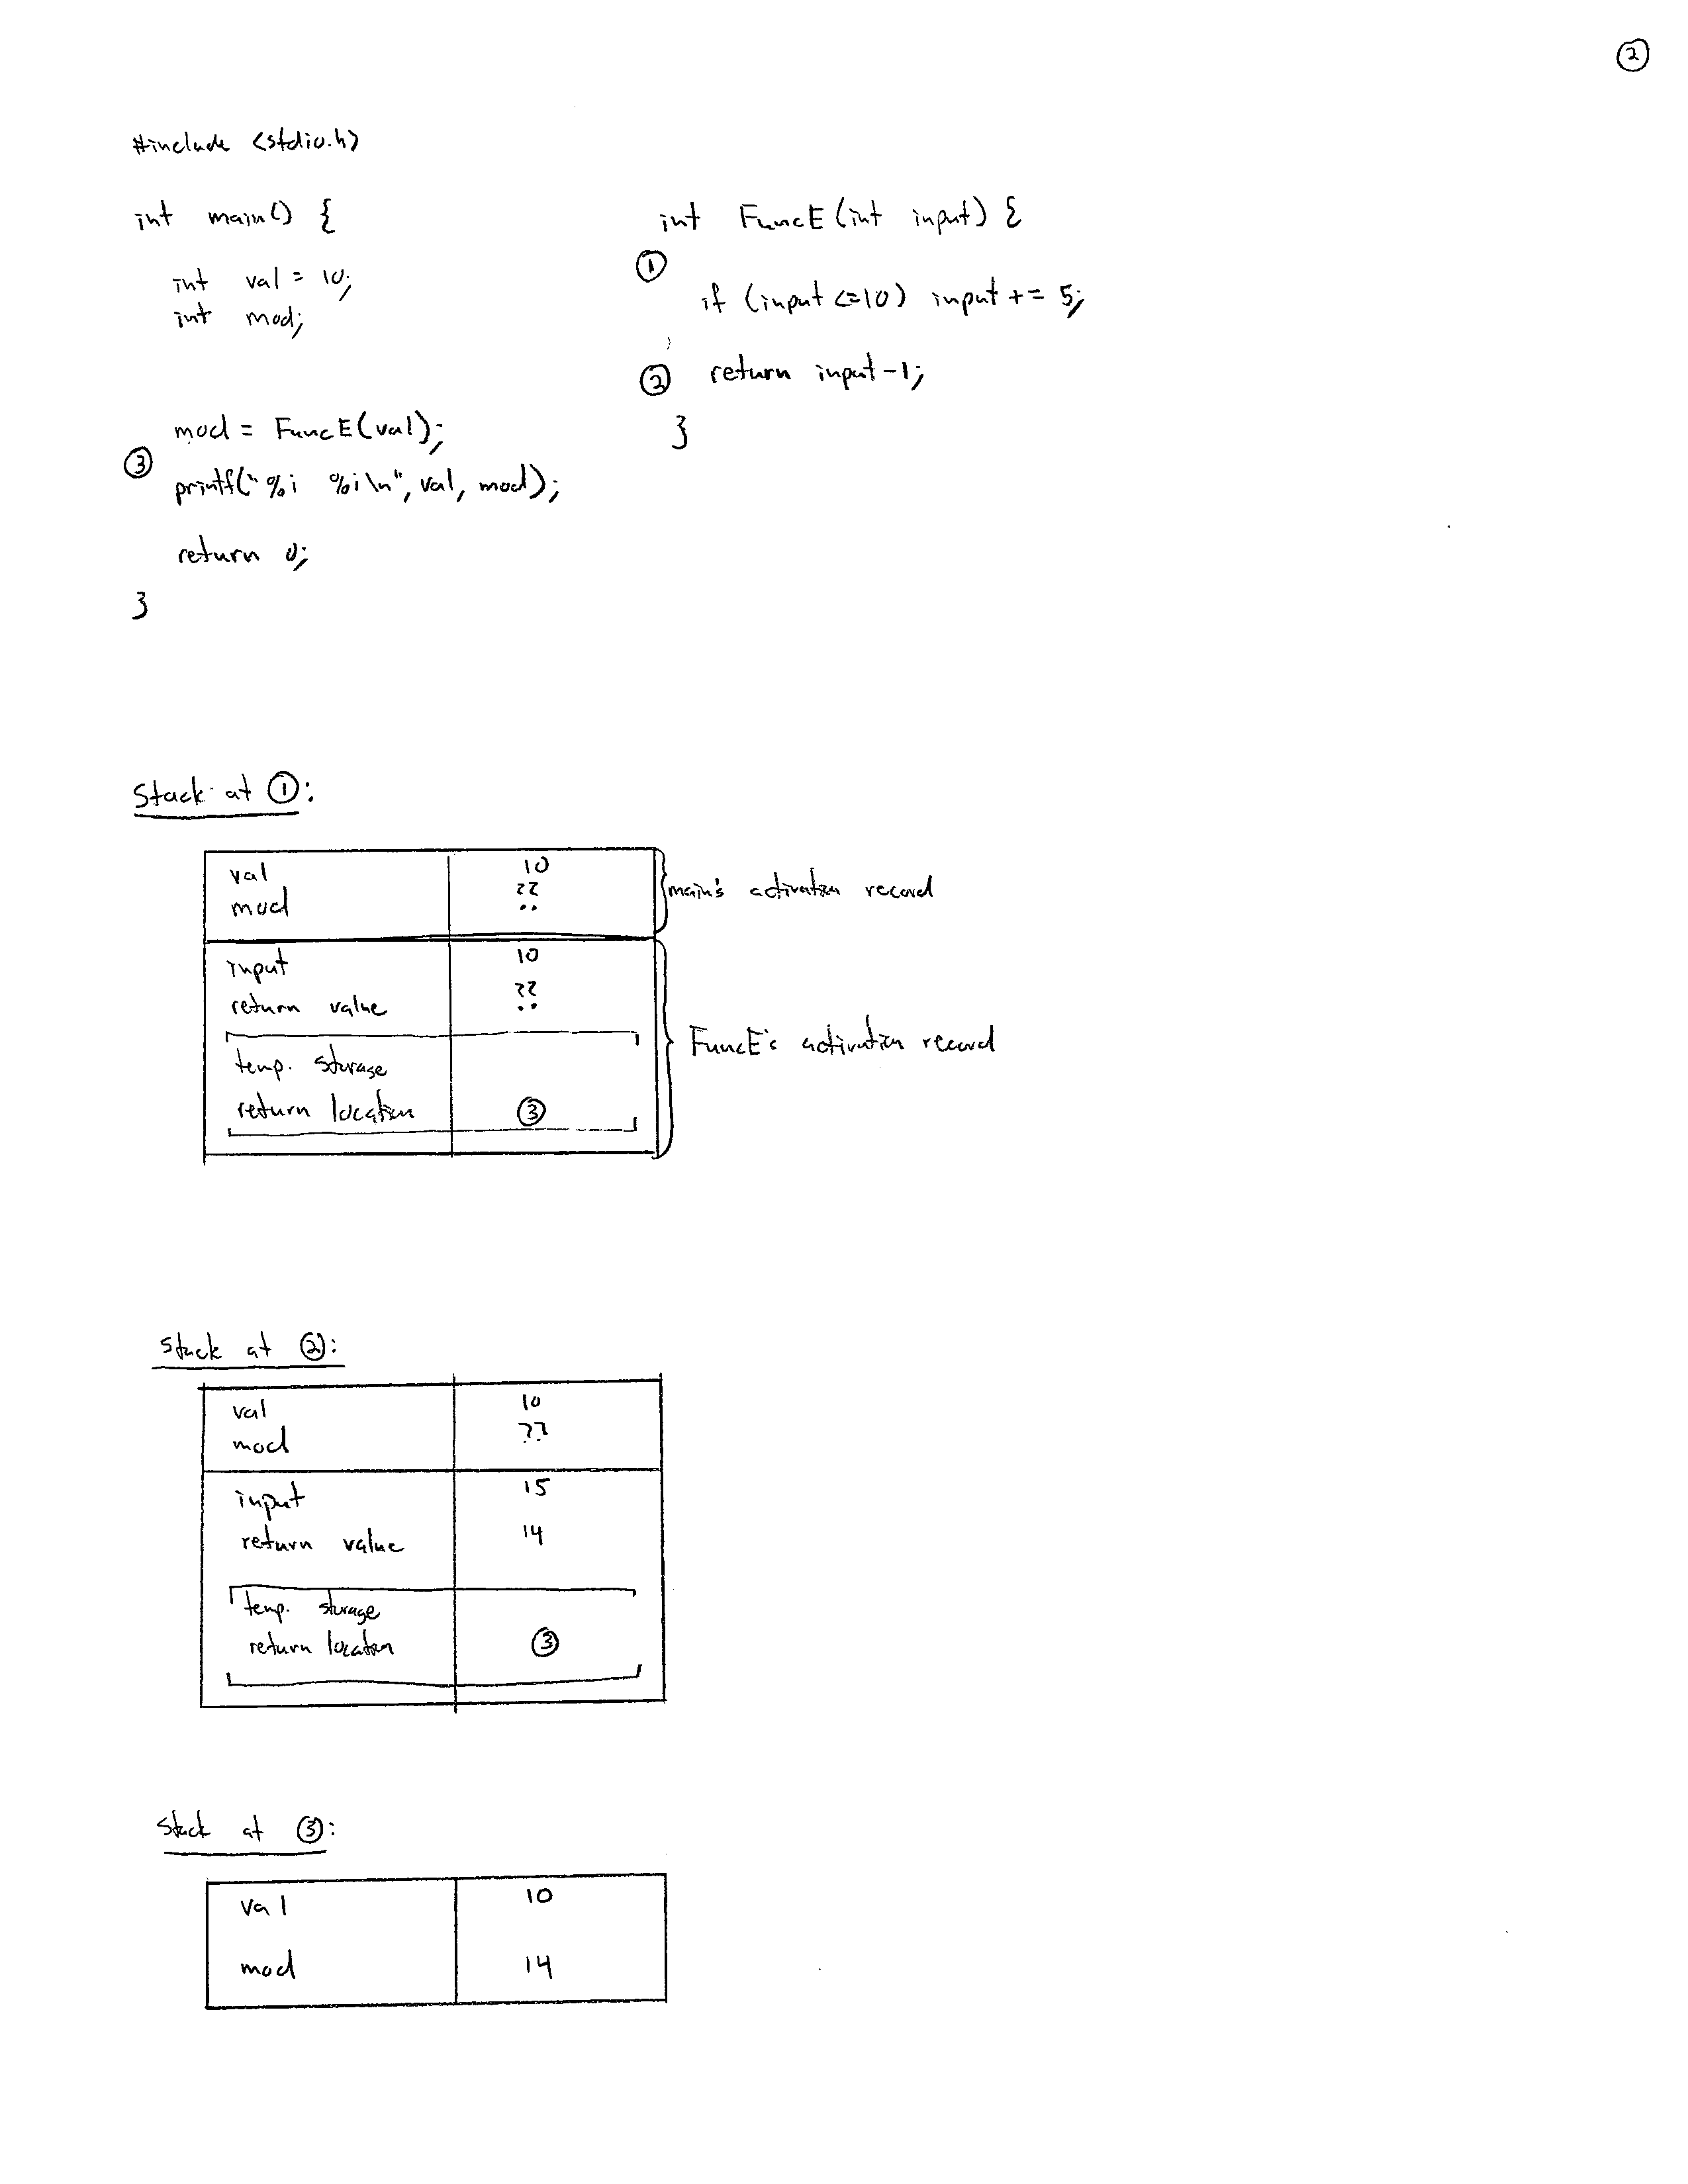 ②
#include <stdio.h>
int main() {
int val = 10;
int mod;
mod = FuncE(val);
③
printf("%i %i\n", val, mod);
return 0;
}
int FuncE(int input) {
①
if (input <=10) input += 5;
② return input-1;
}
Stack at ①:
val 10
mod ??
main's activation record
input 10
return value ??
FuncE's activation record
temp. storage
return location ③
Stack at ②:
val 10
mod ??
input 15
return value 14
temp. storage
return location ③
Stack at ③:
val 10
mod 14